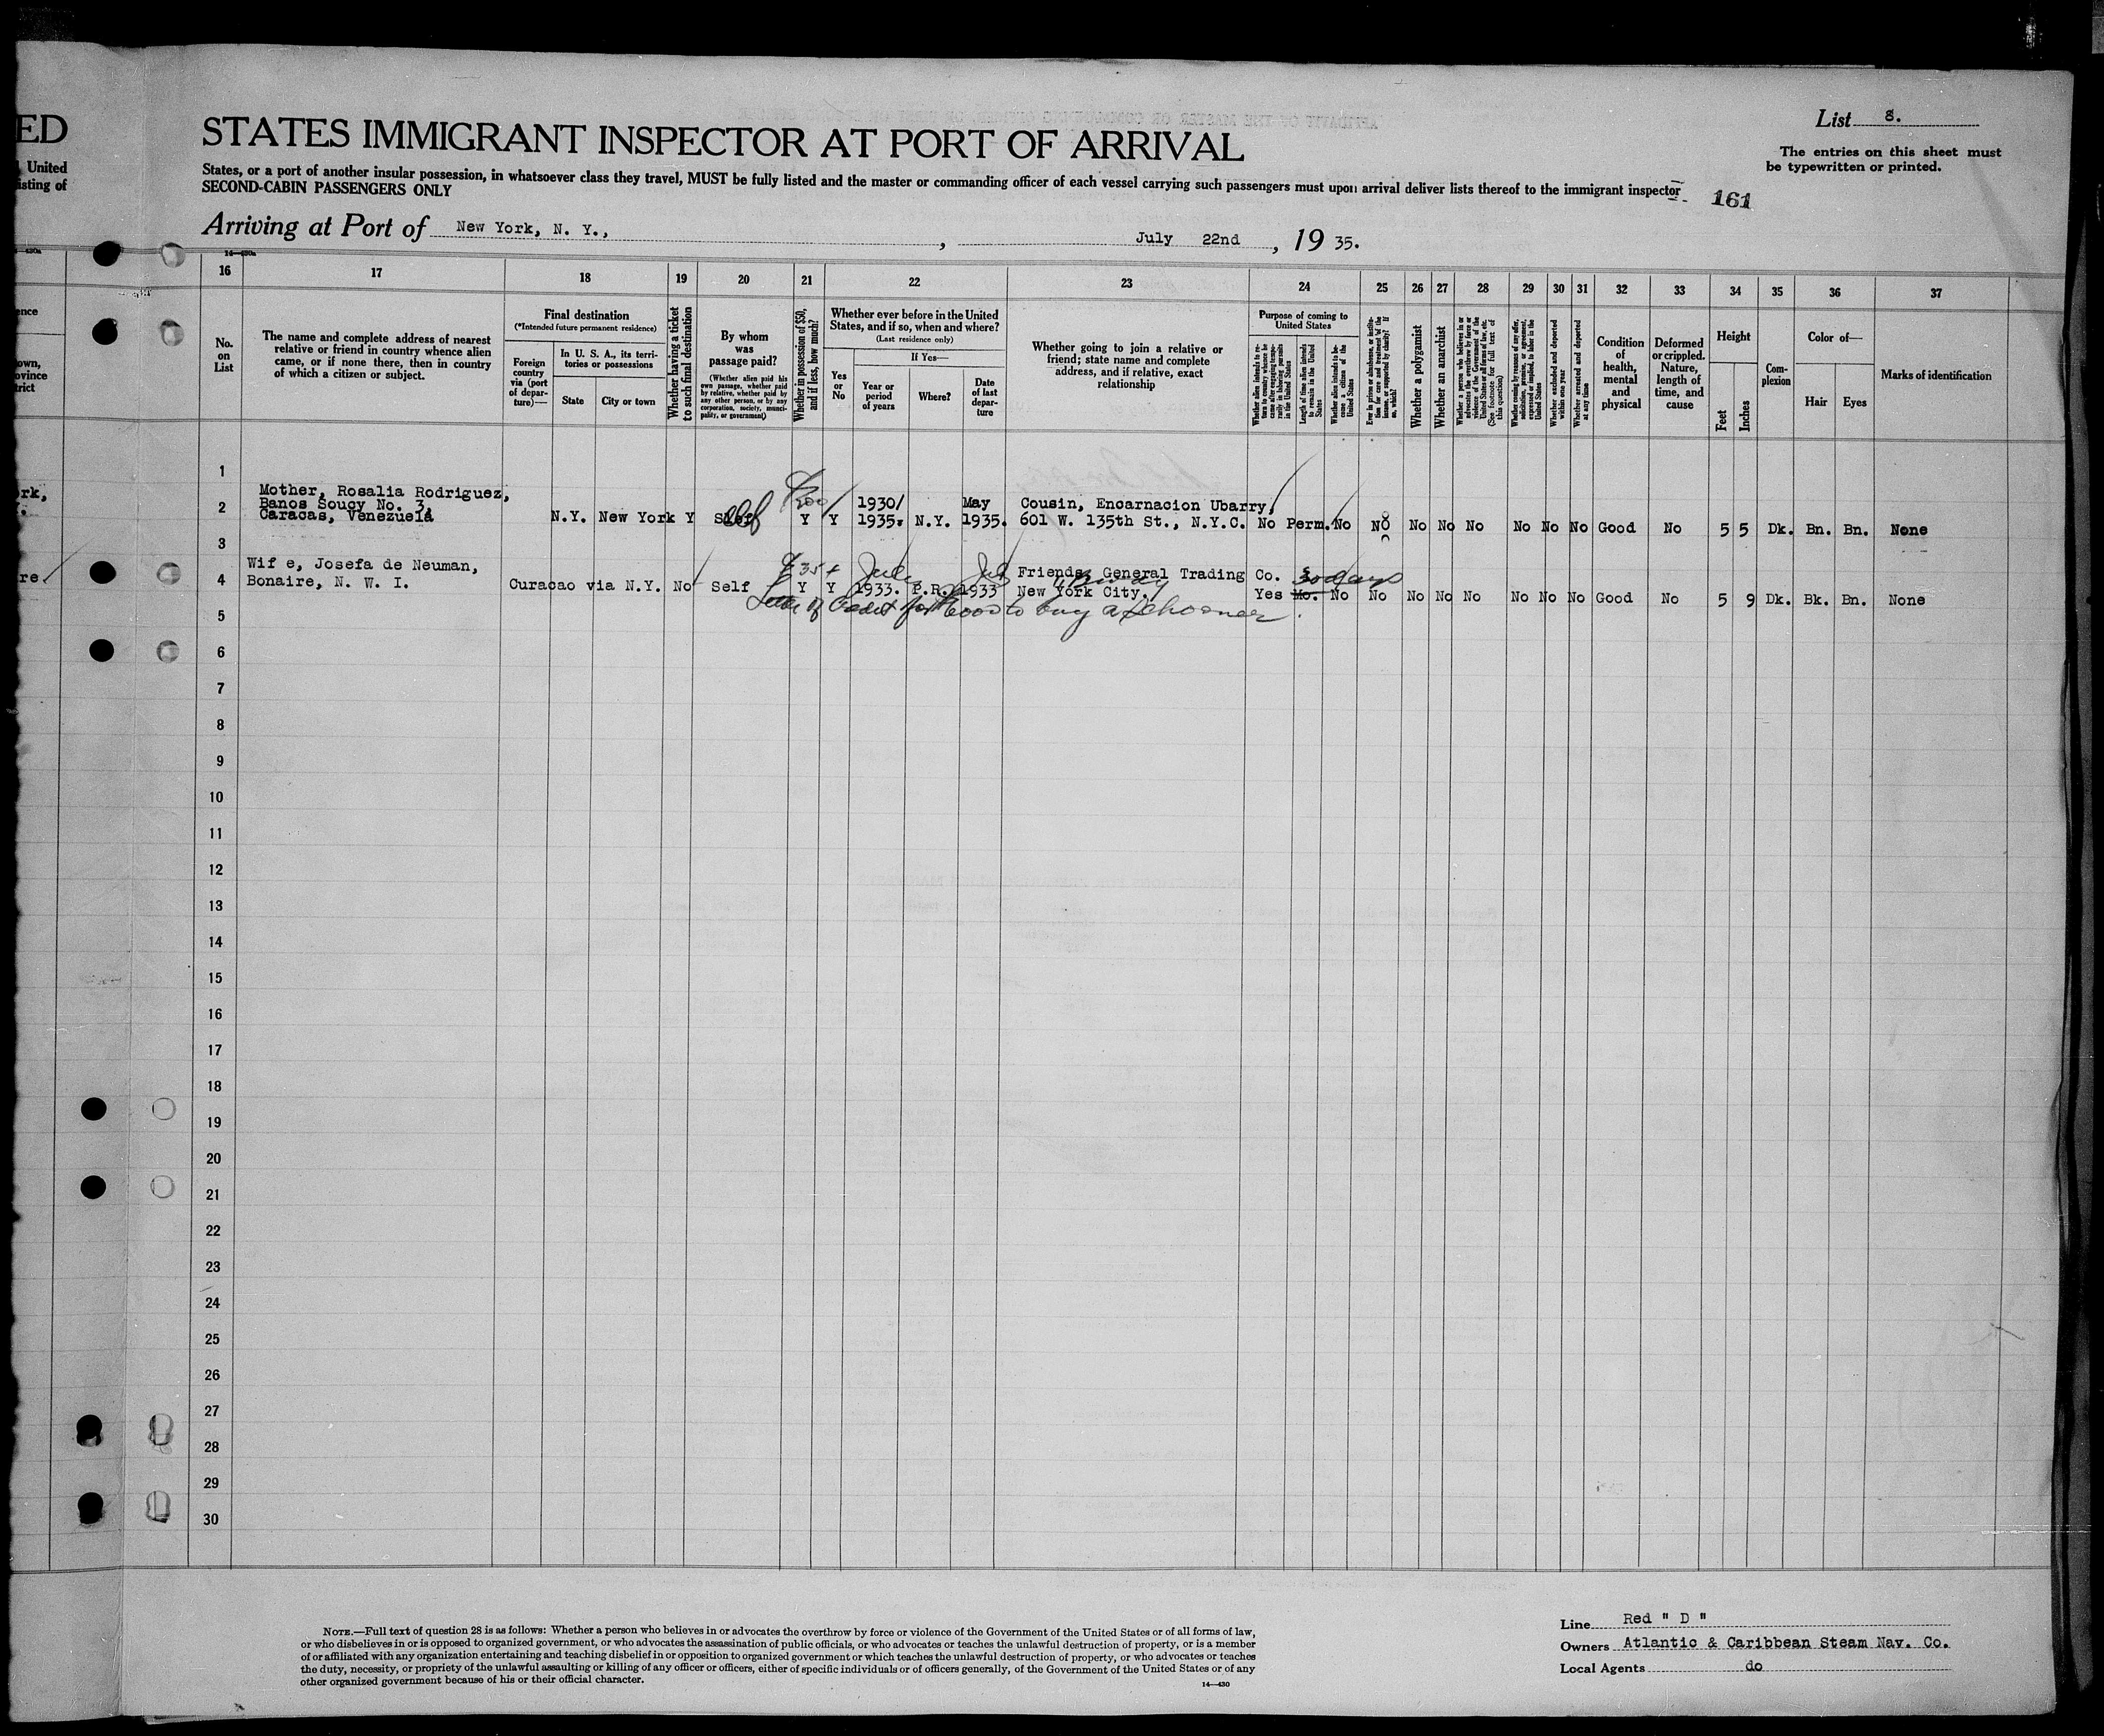 ED
STATES IMMIGRANT INSPECTOR AT PORT OF ARRIVAL
List 8.
The entries on this sheet must
be typewritten or printed.
, United
isting of
States, or a port of another insular possession, in whatsoever class they travel, MUST be fully listed and the master or commanding officer of each vessel carrying such passengers must upon arrival deliver lists thereof to the immigrant inspector
SECOND-CABIN PASSENGERS ONLY
161
Arriving at Port of New York, N. Y., , July 22nd , 19 35.
14—430a
16 17 18 19 20 21 22 23 24 25 26 27 28 29 30 31 32 33 34 35 36 37
ence
own,
ovince
trict
No.
on
List
The name and complete address of nearest
relative or friend in country whence alien
came, or if none there, then in country
of which a citizen or subject.
Final destination
(*Intended future permanent residence)
Foreign
country
via (port
of depar-
ture)—
In U. S. A., its terri-
tories or possessions
State
City or town
Whether having a ticket
to such final destination
By whom
was
passage paid?
(Whether alien paid his
own passage, whether paid
by relative, whether paid by
any other person, or by any
corporation, society, munici-
pality, or government)
Whether in possession of $50,
and if less, how much?
Whether ever before in the United
States, and if so, when and where?
(Last residence only)
Yes
or
No
If Yes—
Year or
period
of years
Where?
Date
of last
depar-
ture
Whether going to join a relative or
friend; state name and complete
address, and if relative, exact
relationship
Purpose of coming to
United States
Whether alien intends to re-
turn to country whence he
came after engaging tempo-
rarily in laboring pursuits
in the United States
Length of time alien intends
to remain in the United
States
Whether alien intends to be-
come a citizen of the
United States
Ever in prison or almshouse, or institu-
tion for care and treatment of the
insane, or supported by charity? If
so, which?
Whether a polygamist
Whether an anarchist
Whether a person who believes in or
advocates the overthrow by force or
violence of the Government of the
United States or all forms of law, etc.
(See footnote for full text of
this question)
Whether coming by reason of any offer,
solicitation, promise, or agreement,
expressed or implied, to labor in the
United States
Whether excluded and deported
within one year
Whether arrested and deported
at any time
Condition
of
health,
mental
and
physical
Deformed
or crippled.
Nature,
length of
time, and
cause
Height
Feet
Inches
Com-
plexion
Color of—
Hair
Eyes
Marks of identification
1
rk,
Mother, Rosalia Rodriguez,
2 Banos Soucy No. 3,
Caracas, Venezuela
N.Y. New York Y Self 200 Y Y 1930/
1935. N.Y. May
1935. Cousin, Encarnacion Ubarry,
601 W. 135th St., N.Y.C. No Perm. No No No No No No No No Good No 5 5 Dk. Bn. Bn. None
3
re
Wif e, Josefa de Neuman,
4 Bonaire, N. W. I.
Curacao via N.Y. No Self 35 Y Y July
1933. P.R. July
1933 Friends, General Trading Co.
New York City. 30 days
Yes Mo. No No No No No No No No Good No 5 9 Dk. Bk. Bn. None
Letter of Credit for 6000 to buy a Schooner.
5
6
7
8
9
10
11
12
13
14
15
16
17
18
19
20
21
22
23
24
25
26
27
28
29
30
NOTE.—Full text of question 28 is as follows: Whether a person who believes in or advocates the overthrow by force or violence of the Government of the United States or of all forms of law,
or who disbelieves in or is opposed to organized government, or who advocates the assassination of public officials, or who advocates or teaches the unlawful destruction of property, or is a member
of or affiliated with any organization entertaining and teaching disbelief in or opposition to organized government or which teaches the unlawful destruction of property, or who advocates or teaches
the duty, necessity, or propriety of the unlawful assaulting or killing of any officer or officers, either of specific individuals or of officers generally, of the Government of the United States or of any
other organized government because of his or their official character.
14—430
Line Red " D "
Owners Atlantic & Caribbean Steam Nav. Co.
Local Agents do